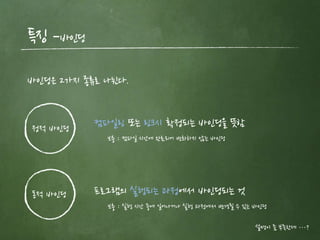 특징 -바인딩
바인딩은 2가지 종류로 나뉜다.
정적 바인딩
컴파일링 또는 링크시 확정되는 바인딩을 뜻함
보통 : 컴파일 시간에 완료되어 변화하지 않는 바인딩
동적 바인딩
프로그램의 실행되는 과정에서 바인딩되는 것
보통 : 실행 시간 중에 일어나거나 실행 과정에서 변경될 수 있는 바인딩
설명이 좀 부족한데 ···?